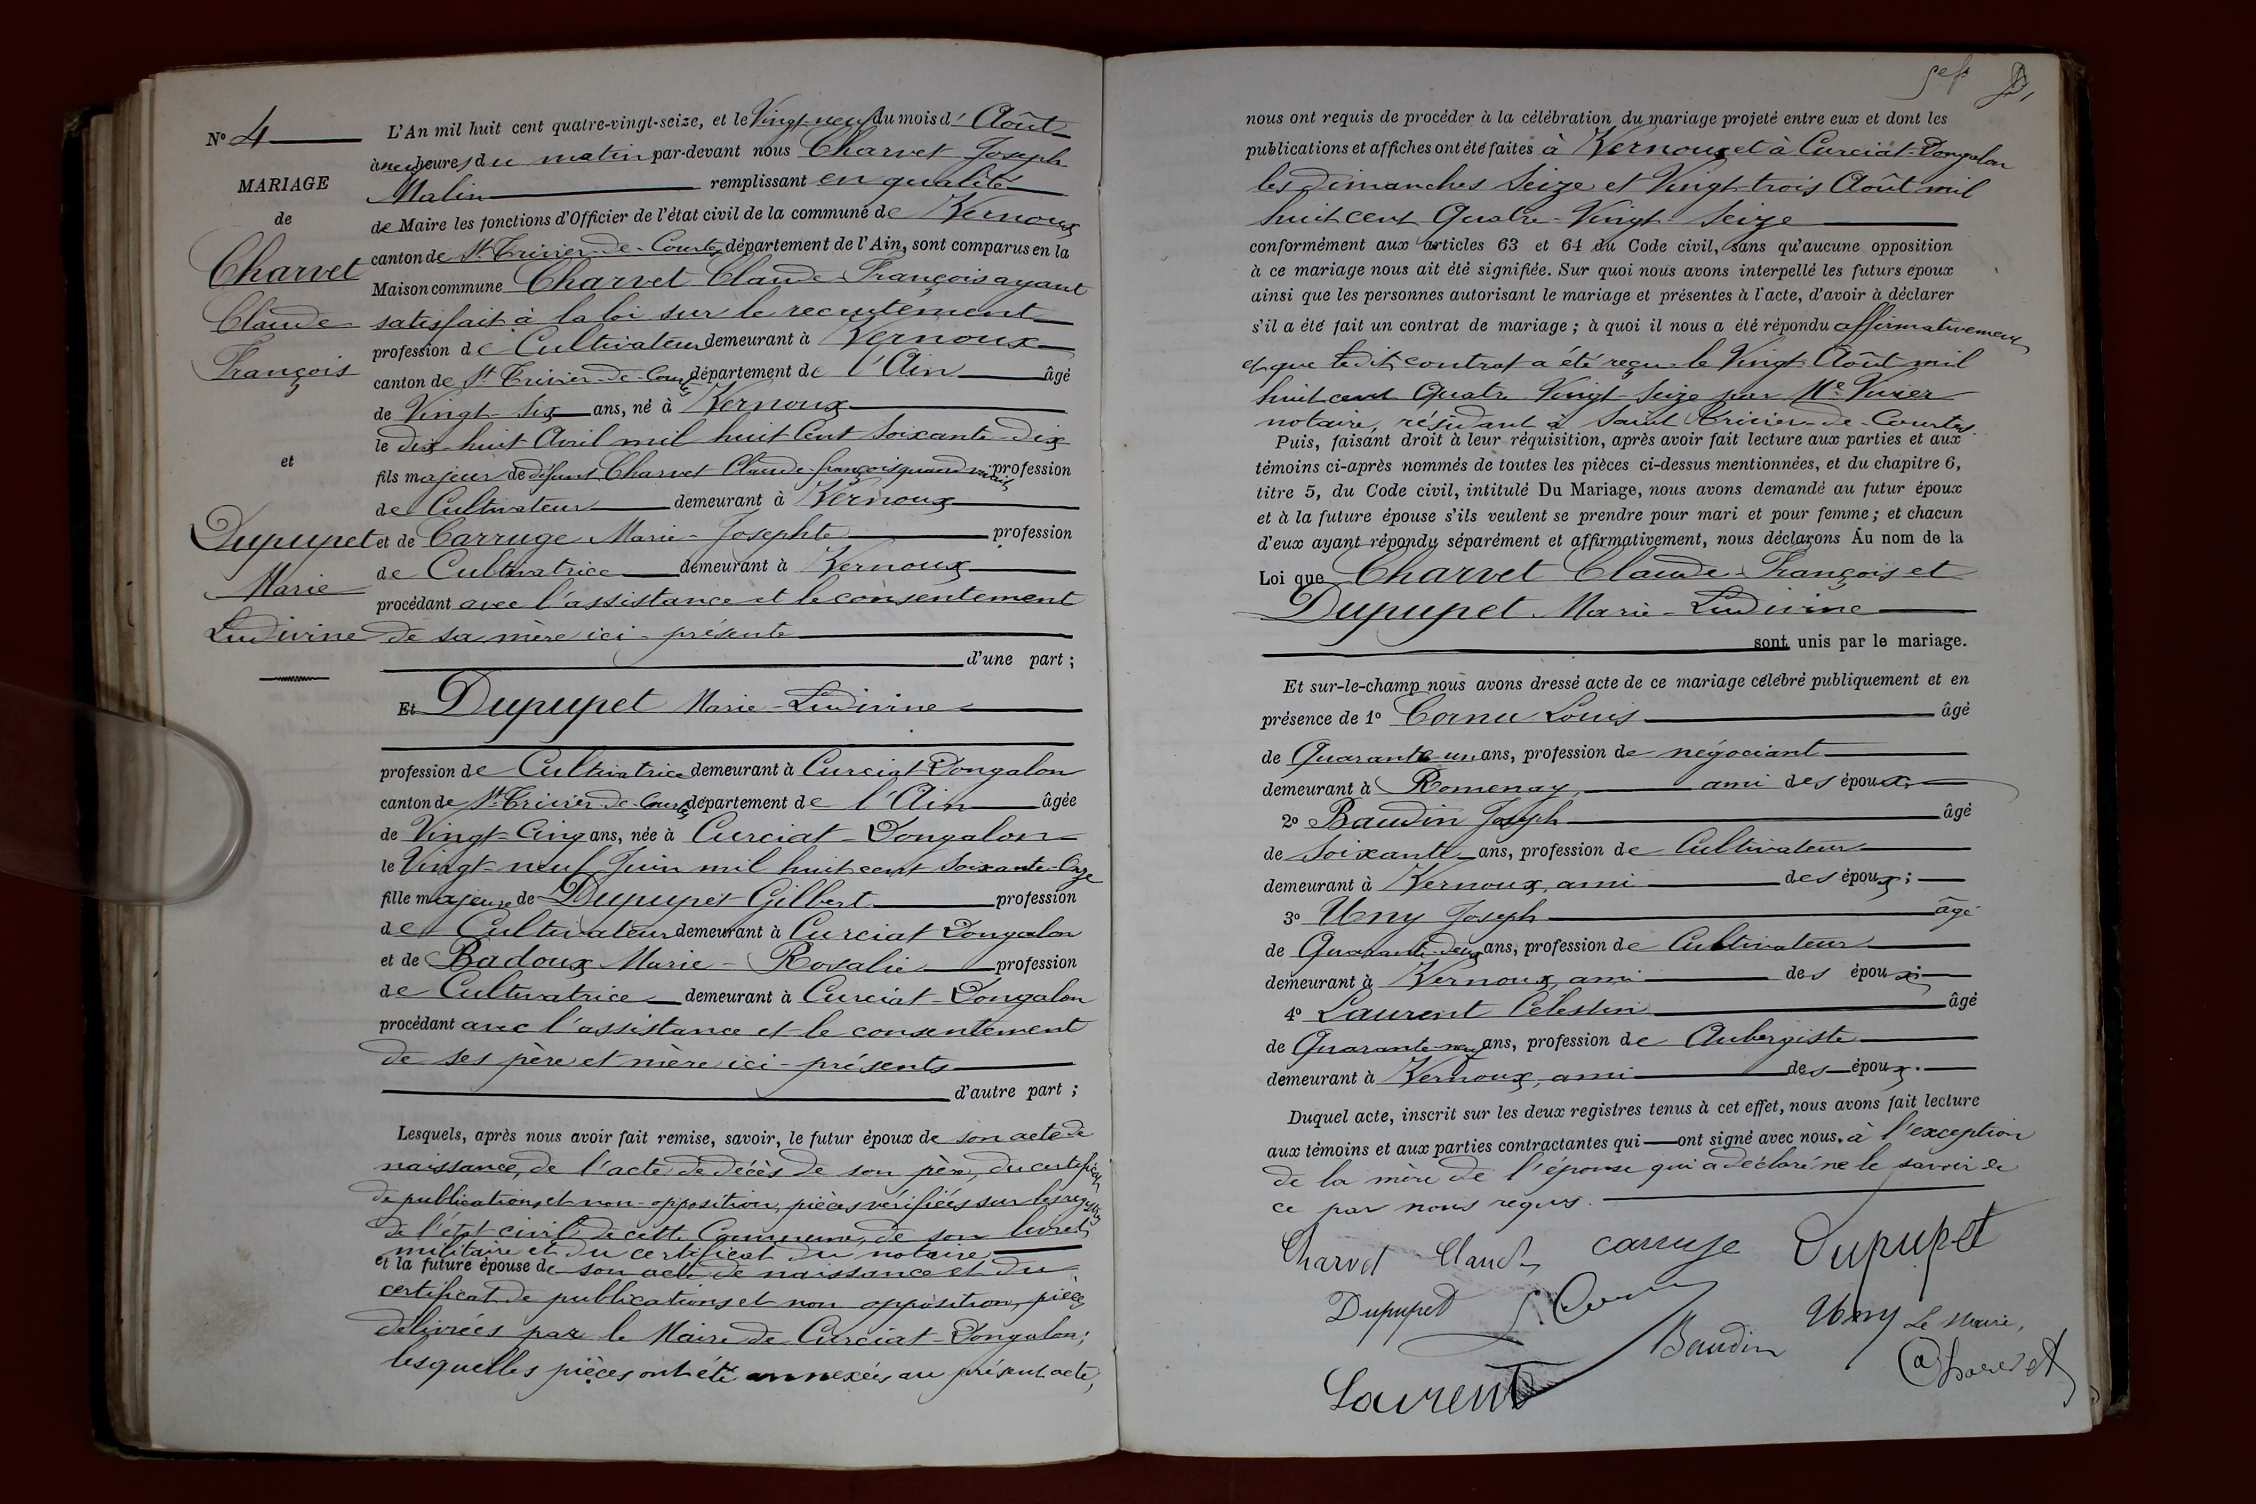 N° 4
MARIAGE
de
Charvet
Claude
François
et
Dupupet
Marie
Ludivine
L'An mil huit cent quatre-vingt-seize, et le Vingt-neuf du mois d'Août
à neuf heures du matin par-devant nous Charvet Joseph
Malin remplissant en qualité
de Maire les fonctions d'Officier de l'état civil de la commune de Vernoux
canton de St Trivier-de-Courtes, département de l'Ain, sont comparus en la
Maison commune Charvet Claude-François ayant
satisfait à la loi sur le recrutement
profession de Cultivateur demeurant à Vernoux
canton de St Trivier-de-Courtes département de l'Ain âgé
de Vingt-Six ans, né à Vernoux
le dix-huit Avril mil huit Cent Soixante-dix
fils majeur de défunt Charvet Claude-françois quand vivait profession
de Cultivateur demeurant à Vernoux
et de Carruge Marie-Josephte profession
de Cultivatrice demeurant à Vernoux
procédant avec l'assistance et le consentement
de sa mère ici-présente
d'une part ;
Et Dupupet Marie-Ludivine
profession de Cultivatrice demeurant à Curciat-Dongalon
canton de St Trivier-de-Courtes département de l'Ain âgée
de Vingt-Cinq ans, née à Curciat-Dongalon
le Vingt-neuf Juin mil huit cent Soixante-Onze
fille majeure de Dupupet Gilbert profession
de Cultivateur demeurant à Curciat Dongalon
et de Badoux Marie-Rosalie profession
de Cultivatrice demeurant à Curciat-Dongalon
procédant avec l'assistance et le consentement
de ses père et mère ici-présents
d'autre part ;
Lesquels, après nous avoir fait remise, savoir, le futur époux de son acte de
naissance, de l'acte de décès de son père, du certificat
de publications et non-opposition, pièces vérifiées sur les registres
de l'état civil de cette Commune, de son livret
militaire et du certificat du notaire
et la future épouse de son acte de naissance et du
certificat de publications et non opposition, pièces
délivrées par le Maire de Curciat-Dongalon;
lesquelles pièces ont été annexées au présent acte,
nous ont requis de procéder à la célébration du mariage projeté entre eux et dont les
publications et affiches ont été faites à Vernoux et à Curciat-Dongalon
les dimanches Seize et Vingt-trois Août mil
huit cent Quatre-Vingt-Seize
conformément aux articles 63 et 64 du Code civil, sans qu'aucune opposition
à ce mariage nous ait été signifiée. Sur quoi nous avons interpellé les futurs époux
ainsi que les personnes autorisant le mariage et présentes à l'acte, d'avoir à déclarer
s'il a été fait un contrat de mariage ; à quoi il nous a été répondu affirmativement
et que ledit contrat a été reçu le Vingt Août mil
huit cent Quatre Vingt-Seize par Me
notaire, résidant à Saint Trivier-de-Courtes.
Puis, faisant droit à leur réquisition, après avoir fait lecture aux parties et aux
témoins ci-après nommés de toutes les pièces ci-dessus mentionnées, et du chapitre 6,
titre 5, du Code civil, intitulé Du Mariage, nous avons demandé au futur époux
et à la future épouse s'ils veulent se prendre pour mari et pour femme ; et chacun
d'eux ayant répondu séparément et affirmativement, nous déclarons Au nom de la
Loi que Charvet Claude-François et
Dupupet Marie-Ludivine
sont unis par le mariage.
Et sur-le-champ nous avons dressé acte de ce mariage célébré publiquement et en
présence de 1° Cornu Louis âgé
de Quarante-un ans, profession de négociant
demeurant à Romenay, ami des époux,
2° Baudin Joseph âgé
de Soixante ans, profession de Cultivateur
demeurant à Vernoux, ami des époux ;
3° Uny Joseph âgé
de Quarante-deux ans, profession de Cultivateur
demeurant à Vernoux, ami des époux ;
4° Laurent Célestin âgé
de Quarante-neuf ans, profession de Aubergiste
demeurant à Vernoux, ami des époux.
Duquel acte, inscrit sur les deux registres tenus à cet effet, nous avons fait lecture
aux témoins et aux parties contractantes qui ont signé avec nous, à l'exception
de la mère de l'épouse qui a déclaré ne le savoir de
ce par nous requis.
Charvet Claude carruge Dupupet
Dupupet L. Cornu Uny Le Maire,
Baudin Charvet
Laurent